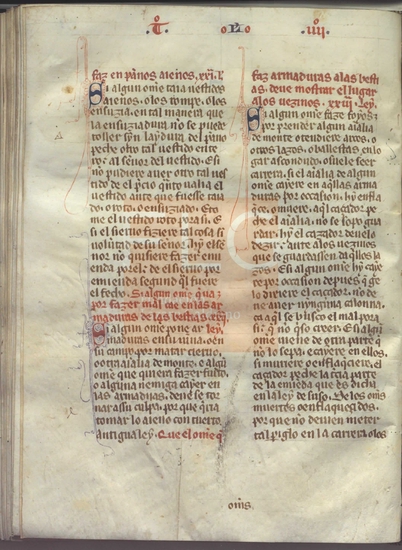 T. L. IIII
faz en panos aienos. xxi. l.
Si algun ome taia uestidos
aienos. o los rompe. o los
ensuzia. en tal manera que
la ensuziadura no se puede
toller sin laydura del pano
peche otro tal uestido ente
ro. al señor del uestido. E si
no pudiere auer otro tal ues
tido de el precio quanto ualia el
uestido ante que fuesse taia
do. o roto. o ensuziado. E to
me el uestido roto pora si. E
si el sieruo fiziere tal cosa si
uoluntad de su señor. ahy el se
nor no quisiere fazer emi
enda por el. de el sieruo por
emienda segund que fuere
el fecho. Si algun ome
por fazer mal en las ar
maduras de las bestias. xxii.
Si algun ome pone ar ley.
maduras en su uina. o en
su campo por matar cieruo.
o otra aialia de monte. e algu
ome que quiera fazer furto
o alguna nemiga cayer en
las armaduras. deue se tor
nar a su culpa. por que
tomar lo aieno con tuerto.
antigua ley. Que el ome q
faz armaduras a las besti
as. deue mostrar el lugar
a los uezinos. xxiii. ley.
Si algun ome faz foyos
por prender algun aialia
de monte o tendiere arcos. o
otros lazos. o ballestas en lo
gar ascondudo. o suele seer
carrera. si el aialia de algun
ome cayere en aquellas arma
duras por occasion. hy enfla
que. o muere. aquel caçador pe
che el aialia. no se sopo gua
rdar. hy el caçador deuelo
dezir ante a los uezinos
que se guardassen daquellos la
zos. E si algun ome hy caye
re por occasion depues que ge
lo dixiere el caçador. no de
ue auer ninguna calonna.
ca aquel se busco el mal pora
si. que no quiso creer. E si algun
ome uiene de otra parte que
no lo sepa. e cayere en ellos.
si muriere o enflaqueciere. el
caçador peche la tercia parte
de la emienda que es dicha
en la ley de suso. De los omes
muertos o enflaquecidos.
por que no deuien meter
tal periglo en la carrera. o los
omes.